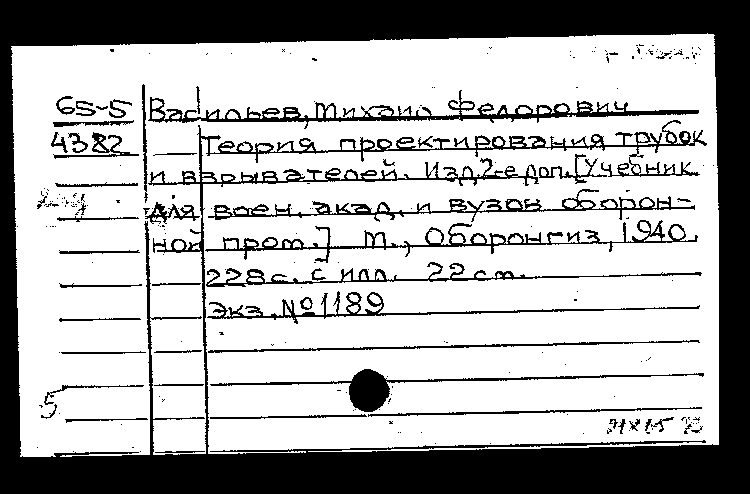 65-5 Васильев, Михаил Федорович
4382 Теория проектирования трубок
и взрывателей. Изд. 2-е доп. [Учебник
для воен. акад. и вузов оборон-
ной пром.] М., Оборонгиз, 1940.
228 с. с илл. 22 см.
Экз. №1189
5